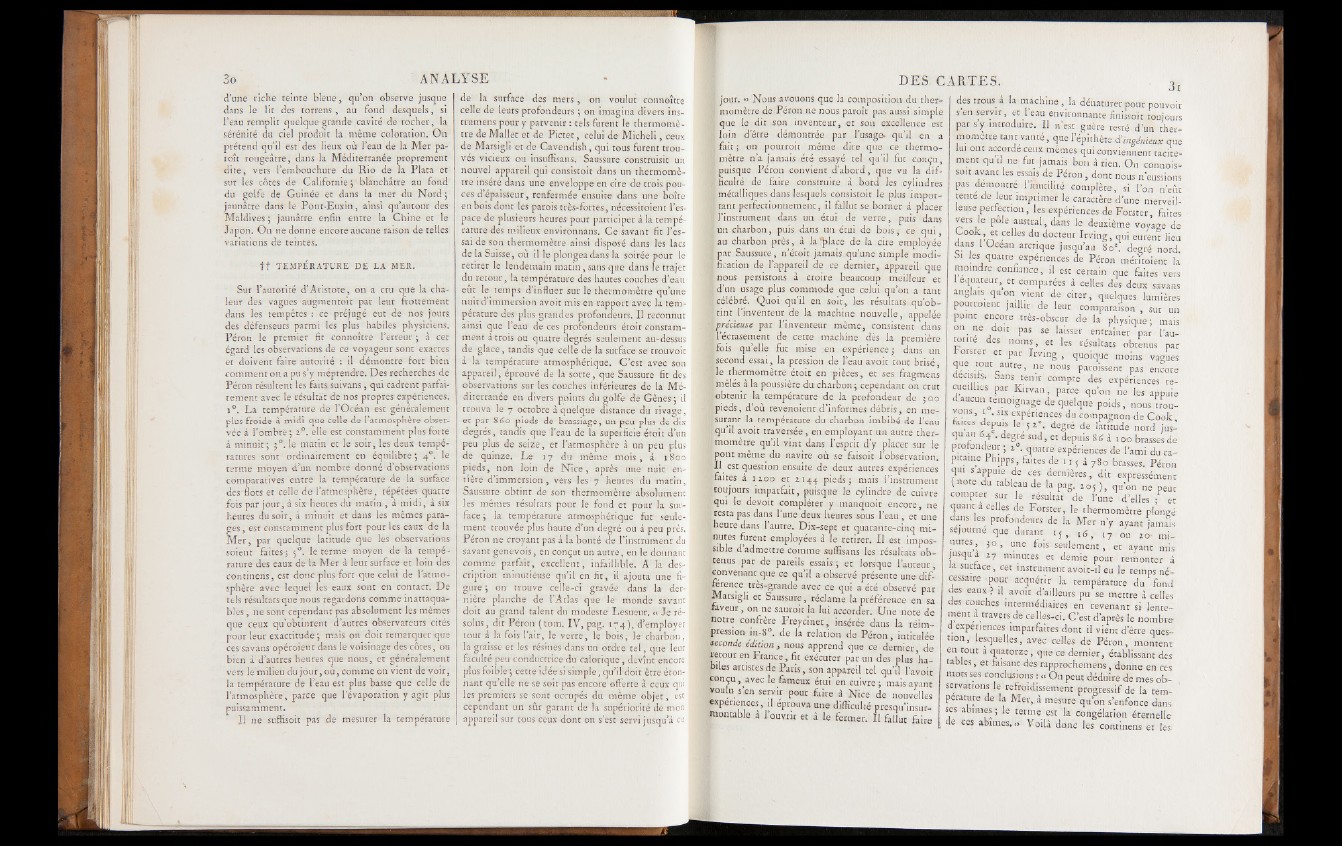 30 ANALYSE
d'une riche teinte bleue, qu'on observe jusque
dans le lit des torrens, au fond desquels, si
l'eau remplit quelque grande cavité de rocher, la
sérénité du ciel produit la même coloration. On
prétend qu'il est des lieux où l'eau de la Mer pa-
roît rougeâtre, dans la Méditerranée proprement
dite, vers l'embouchure du Rio de la Plata et
sur les côtes de Californie; blanchâtre au fond
du golfe de Guinée et dans la mer du Nord;
jaunâtre dans le Pont-Euxin, ainsi qu'autour des
Maldives; jaunâtre enfin entre la Chine et le
Japon. On ne donne encore aucune raison de telles
variations de teintes.
†† TEMPÉRATURE DE LA MER.
Sur l'autorité d'Aristote, on a cru que la cha-
leur des vagues augmentoit par leur frottement
dans les tempêtes : ce préjugé eut de nos jours
des défenseurs parmi les plus habiles physiciens.
Péron le premier fit connoître l'erreur; à cet
égard les observations de ce voyageur sont exactes
et doivent faire autorité : il démontre fort bien
comment on a pu s'y méprendre. Des recherches de
Péron résultent les faits suivans, qui cadrent parfai-
tement avec le résultat de nos propres expériences.
1°. La température de l'Océan est généralement
plus froide à midi que celle de l'atmosphère obser-
vée à l'ombre; 2°. elle est constamment plus forte
à minuit; 3°. le matin et le soir, les deux tempé-
ratures sont ordinairement en équilibre; 4°. le
terme moyen d'un nombre donné d'observations
comparatives entre la température de la surface
des flots et celle de l'atmosphère, répétées quatre
fois par jour, à six heures du matin, à midi, à six
heures du soir, à minuit et dans les mêmes para-
ges, est constamment plus fort pour les eaux de la
Mer, par quelque latitude que les observations
soient faites; 5°. le terme moyen de la tempé-
rature des eaux de la Mer à leur surface et loin des
continens, est donc plus fort que celui de l'atmo-
sphère avec lequel les eaux sont en contact. De
tels résultats que nous regardons comme inattaqua-
bles, ne sont cependant pas absolument les mêmes
que ceux qu'obtinrent d'autres observateurs cités
pour leur exactitude; mais on doit remarquer que
ces savans opéroient dans le voisinage des côtes, ou
bien à d'autres heures que nous, et généralement
vers le milieu du jour, où, comme on vient de voir,
la température de l'eau est plus basse que celle de
l'atmosphère, parce que l'évaporation y agit plus
puissamment.
Il ne suffisoit pas de mesurer la température
de la surface des mers, on voulut connoître
celle de leurs profondeurs; on imagina divers ins-
trumens pour y parvenir : tels furent le thermomè-
tre de Mallet et de Pictet, celui de Micheli, ceux
de Marsigli et de Cavendish, qui tous furent trou-
vés vicieux ou insuffisans. Saussure construisit un
nouvel appareil qui consistoit dans un thermomè-
tre inséré dans une enveloppe en cire de trois pou-
ces d'épaisseur, renfermée ensuite dans une boîte
en bois dont les parois très-fortes, nécessitoient l'es-
pace de plusieurs heures pour participer à la tempé-
rature des milieux environnans. Ce savant fit l'es-
sai de son thermomètre ainsi disposé dans les lacs
de la Suisse, où il le plongea dans la soirée pour le
retirer le lendemain matin, sans que dans le trajet
du retour, la température des hautes couches d'eau
eût le temps d'influer sur le thermomètre qu'une
nuit d'immersion avoit mis en rapport avec la tem-
pérature des plus grandes profondeurs. Il reconnut
ainsi que l'eau de ces profondeurs étoit constam-
ment à trois ou quatre degrés seulement au-dessus
de glace, tandis que celle de la surface se trouvoit
à la température atmosphérique. C'est avec son
appareil, éprouvé de la sorte, que Saussure fit des
observations sur les couches inférieures de la Mé-
diterranée en divers points du golfe de Gènes; il
trouva le 7 octobre à quelque distance du rivage,
et par 860 pieds de brassiage, un peu plus de dix
degrés, tandis que l'eau de la superficie étoit d'un
peu plus de seize, et l'atmosphère à un peu plus
de quinze. Le 17 du même mois, à 1800
pieds, non loin de Nice, après une nuit en-
tière d'immersion, vers les 7 heures du matin,
Saussure obtint de son thermomètre absolument
les mêmes résultats pour le fond et pour la sur-
face; la température atmosphérique fut seule-
ment trouvée plus haute d'un degré ou à peu près.
Péron ne croyant pas à la bonté de l'instrument du
savant genevois, en conçut un autre, en le donnant
comme parfait, excellent, infaillible. A la des-
cription minutieuse qu'il en fit, il ajouta une fi-
gure; on trouve celle-ci gravée dans la der-
nière planche de l'Atlas que le monde savant
doit au grand talent du modeste Lesueur. « Je ré-
solus, dit Péron (tom. IV, pag. 174), d'employer
tout à la fois l'air, le verre, le bois, le charbon,
la graisse et les résines dans un ordre tel, que leur
faculté peu conductrice du calorique, devînt encore
plus foible; cette idée si simple, qu'il doit être éton-
nant qu'elle ne se soit pas encore offerte à ceux qui
les premiers se sont occupés du même objet, est
cependant un sûr garant de la supériorité de mon
appareil sur tous ceux dont on s'est servi jusqu'à ce
DES CARTES. 31
jour. » Nous avouons que la composition du ther-
momètre de Péron ne nous paroît pas aussi simple
que le dit son inventeur, et son excellence est
loin d'être démontrée par l'usage qu'il en a
fait; on pourroit même dire que ce thermo-
mètre n'a jamais été essayé tel qu'il fut conçu,
puisque Péron convient d'abord, que vu la dif-
ficulté de faire construire à bord les cylindres
métalliques dans lesquels consistoit le plus impor-
tant perfectionnement, il fallut se borner à placer
l'instrument dans un étui de verre, puis dans
un charbon, puis dans un étui de bois; ce qui,
au charbon près, à la place de la cire employée
par Saussure, n'étoit jamais qu'une simple modi-
fication de l'appareil de ce dernier, appareil que
nous persistons à croire beaucoup meilleur et
d'un usage plus commode que celui qu'on a tant
célébré. Quoi qu'il en soit, les résultats qu'ob-
tint l'inventeur de la machine nouvelle, appelée
précieuse par l'inventeur même, consistent dans
l'écrasement de cette machine dès la première
fois qu'elle fut mise en expérience; dans un
second essai, la pression de l'eau avoit tout brisé,
le thermomètre étoit en pièces, et ses fragmens
mêlés à la poussière du charbon; cependant on crut
obtenir la température de la profondeur de 300
pieds, d'où revenoient d'informes débris, en me-
surant la température du charbon imbibé de l'eau
qu'il avoit traversée, en employant un autre ther-
momètre qu'il vint dans l'esprit d'y placer sur le
pont même du navire où se faisoit l'observation.
Il est question ensuite de deux autres expériences
faites à 1200 et 2144 pieds; mais l'instrument
toujours imparfait, puisque le cylindre de cuivre
qui le devoit compléter y manquoit encore, ne
resta pas dans l'une deux heures sous l'eau, et une
heure dans l'autre. Dix-sept et quarante-cinq mi-
nutes furent employées à le retirer. Il est impos-
sible d'admettre comme suffisans les résultats ob-
tenus par de pareils essais; et lorsque l'auteur,
convenant que ce qu'il a observé présente une dif-
férence très-grande avec ce qui a été observé par
Marsigli et Saussure, réclame la préférence en sa
faveur, on ne sauroit la lui accorder. Une note de
notre confrère Freycinet, insérée dans la réim-
pression in-8°. de la relation de Péron, intitulée
seconde édition, nous apprend que ce dernier, de
retour en France, fit exécuter par un des plus ha-
biles artistes de Paris, son appareil tel qu'il l'avoit
conçu, avec le fameux étui en cuivre; mais ayant
voulu s'en servir pour faire à Nice de nouvelles
expériences, il éprouva une difficulté presqu'insur-
montable à l'ouvrir et à le fermer. Il fallut faire
des trous à la machine, la dénaturer pour pouvoir
s'en servir, et l'eau environnante finissoit toujours
par s'y introduire. Il n'est guère resté d'un ther-
momètre tant vanté, que l'épithète d'ingénieux que
lui ont accordé ceux mêmes qui conviennent tacite-
ment qu'il ne fut jamais bon à rien. On connois-
soit avant les essais de Péron, dont nous n'eussions
pas démontré l'inutilité complète, si l'on n'eût
tenté de leur imprimer le caractère d'une merveil-
leuse perfection, les expériences de Forster, faites
vers le pôle austral, dans le deuxième voyage de
Cook, et celles du docteur Irving, qui eurent lieu
dans l'Océan arctique jusqu'au 80e. degré nord.
Si les quatre expériences de Péron méritoient la
moindre confiance, il est certain que faites vers
l'équateur, et comparées à celles des deux savans
anglais qu'on vient de citer, quelques lumières
pourroient jaillir de leur comparaison, sur un
point encore très-obscur de la physique; mais
on ne doit pas se laisser entraîner par l'au-
torité des noms, et les résultats obtenus par
Forster et par Irving, quoique moins vagues
que tout autre, ne nous paroissent pas encore
décisifs. Sans tenir compte des expériences re-
cueillies par Kirvan, parce qu'on ne les appuie
d'aucun témoignage de quelque poids, nous trou-
vons, 1°. six expériences du compagnon de Cook,
faites depuis le 52e. degré de latitude nord jus-
qu'au 64e. degré sud, et depuis 86 à 100 brasses de
profondeur; 2°. quatre expériences de l'ami du ca-
pitaine Phipps, faites de 115 à 780 brasses. Péron
qui s'appuie de ces dernières, dit expressément
(note du tableau de la pag. 205), qu'on ne peut
compter sur le résultat de l'une d'elles; et
quant à celles de Forster, le thermomètre plongé
dans les profondeurs de la Mer n'y ayant jamais
séjourné que durant 15, 16, 17 ou 20 mi-
nutes, 30, une fois seulement, et ayant mis
jusqu'à 27 minutes et demie pour remonter à
la surface, cet instrument avoit-il eu le temps né-
cessaire pour acquérir la température du fond
des eaux? il avoit d'ailleurs pu se mettre à celles
des couches intermédiaires en revenant si lente-
ment à travers de celles-ci. C'est d'après le nombre
d'expériences imparfaites dont il vient d'être ques-
tion, lesquelles, avec celles de Péron, montent
en tout à quatorze, que ce dernier, établissant des
tables, et faisant des rapprochemens, donne en ces
mots ses conclusions : « On peut déduire de mes ob-
servations le refroidissement progressif de la tem-
pérature de la Mer, à mesure qu'on s'enfonce dans
ses abîmes; le terme est la congélation éternelle
de ces abîmes. » Voilà donc les continens et les